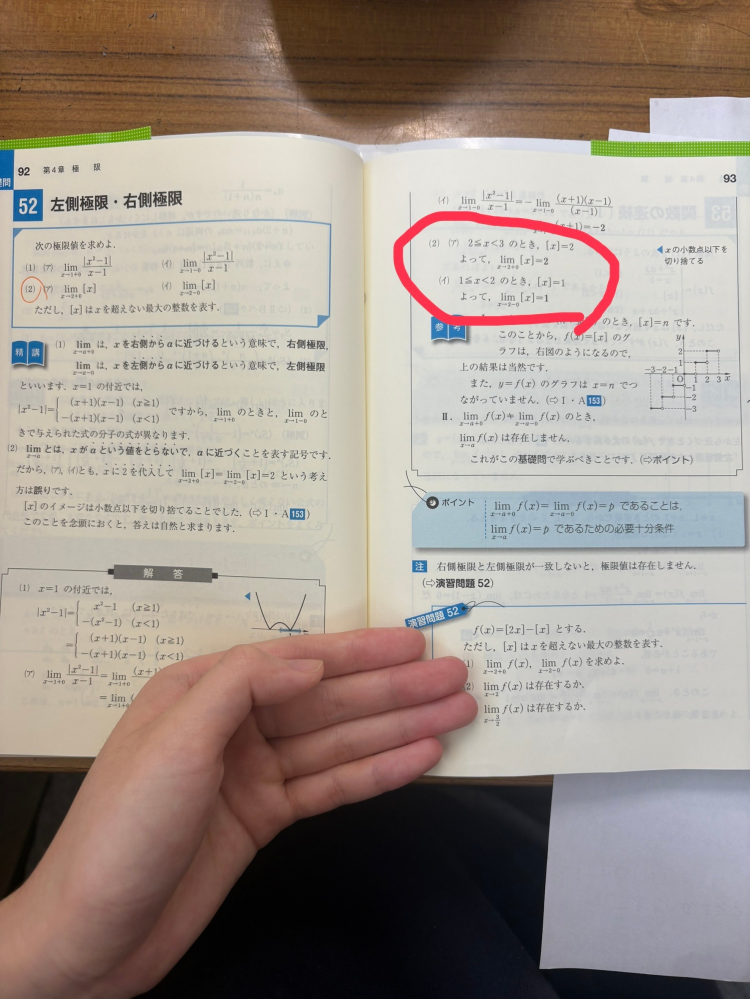 92 第4章 極 限
52 左側極限・右側極限
次の極限値を求めよ.
(1) (ア) lim_{x→1+0} |x²−1|/(x−1) (イ) lim_{x→1−0} |x²−1|/(x−1)
(2) (ア) lim_{x→2+0} [x] (イ) lim_{x→2−0} [x]
ただし, [x] は x を超えない最大の整数を表す.
精 講
(1) lim_{x→a+0} は, x を右側から a に近づけるという意味で, 右側極限,
lim_{x→a−0} は, x を左側から a に近づけるという意味で, 左側極限
といいます. x=1 の付近では,
|x²−1|={ (x+1)(x−1) (x≧1)
−(x+1)(x−1) (x<1) ですから, lim_{x→1+0} のときと, lim_{x→1−0} のと
きで与えられた式の分子の式が異なります.
(2) lim_{x→a} とは, x が a という値をとらないで, a に近づくことを表す記号です.
だから, (ア), (イ)とも, x に 2 を代入して lim_{x→2+0} [x]=lim_{x→2−0} [x]=2 という考え
方は誤りです.
[x] のイメージは小数点以下を切り捨てることでした. (⇨Ⅰ・A 153)
このことを念頭におくと, 答えは自然と求まります.
解 答
(1) x=1 の付近では,
|x²−1|={ x²−1 (x≧1)
−(x²−1) (x<1)
={ (x+1)(x−1) (x≧1)
−(x+1)(x−1) (x<1)
(ア) lim_{x→1+0} |x²−1|/(x−1) = lim_{x→1+0} (x+1)
= lim_{x→1+0} (x
93
(イ) lim_{x→1−0} |x²−1|/(x−1) = −lim_{x→1−0} (x+1)(x−1)/(x−1)
(x+1)=−2
(2) (ア) 2≦x<3 のとき, [x]=2
よって, lim_{x→2+0} [x]=2
◀ x の小数点以下を
切り捨てる
(イ) 1≦x<2 のとき, [x]=1
よって, lim_{x→2−0} [x]=1
参 考
のとき, [x]=n です.
このことから, f(x)=[x] のグ
ラフは, 右図のようになるので,
上の結果は当然です.
また, y=f(x) のグラフは x=n でつ
ながっていません. (⇨Ⅰ・A 153)
y
2
1
−3−2−1 O 1 2 3 x
−1
−2
−3
Ⅱ. lim_{x→a+0} f(x)≠lim_{x→a−0} f(x) のとき,
lim_{x→a} f(x) は存在しません.
これがこの基礎問で学ぶべきことです. (⇨ポイント)
ポイント
lim_{x→a+0} f(x)=lim_{x→a−0} f(x)=p であることは,
lim_{x→a} f(x)=p であるための必要十分条件
注 右側極限と左側極限が一致しないと, 極限値は存在しません.
(⇨演習問題 52)
演習問題 52
f(x)=[2x]−[x] とする.
ただし, [x] は x を超えない最大の整数を表す.
1) lim_{x→2+0} f(x), lim_{x→2−0} f(x) を求めよ.
2) lim_{x→2} f(x) は存在するか.
lim_{x→3/2} f(x) は存在するか.